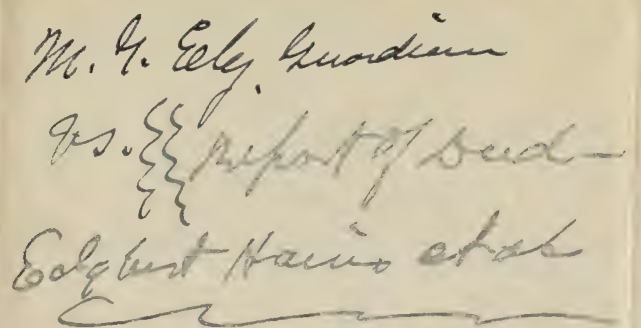 M. G. Edg. Guardian
Vs. Report of Deed
Edgbert Hains et als